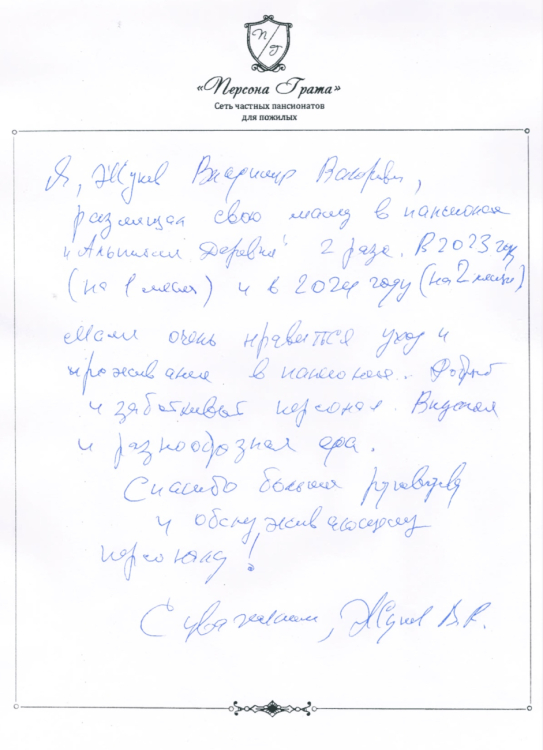 П
Г
«Персона Грата»
Сеть частных пансионатов
для пожилых
Я, Жуков Владимир
размещал свою маму в пансионат
"Альпийская Деревня" 2 раза. В 2023 году
(на 1 месяц) и в 2024 году (на 2 месяца)
Маме очень нравится уход и
проживание в пансионате. Добрый
и заботливый персонал. Вкусная
и разнообразная еда.
Спасибо большое руководству
и обслуживающему
персоналу!
С уважением, Жуков В.В.